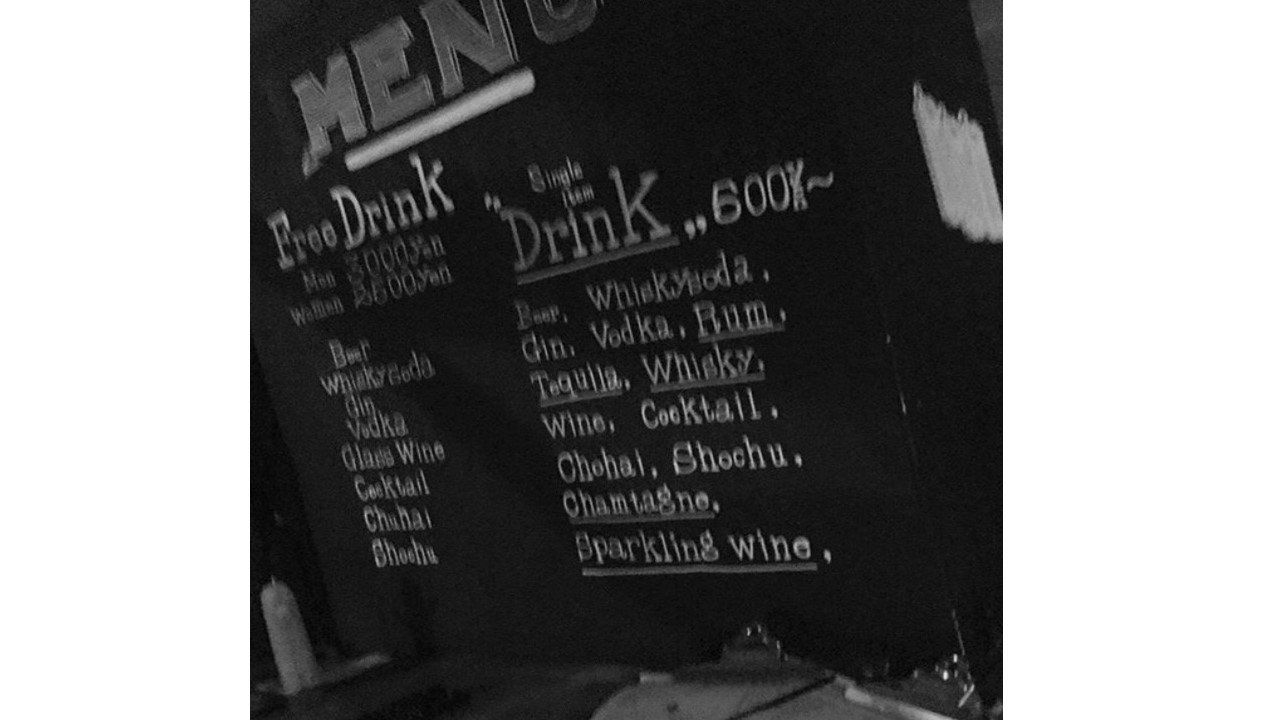 MENU
Free Drink
Men 3000yen
Women 2500yen
Beer
Whiskysoda
Gin
Vodka
Glass Wine
Cocktail
Chuhai
Shochu
Single
item
"Drink„ 600¥~
Beer, Whiskysoda,
Gin, Vodka, Rum,
Tequila, Whisky,
Wine, Cocktail,
Chohai, Shochu,
Chamtagne,
Sparkling wine,